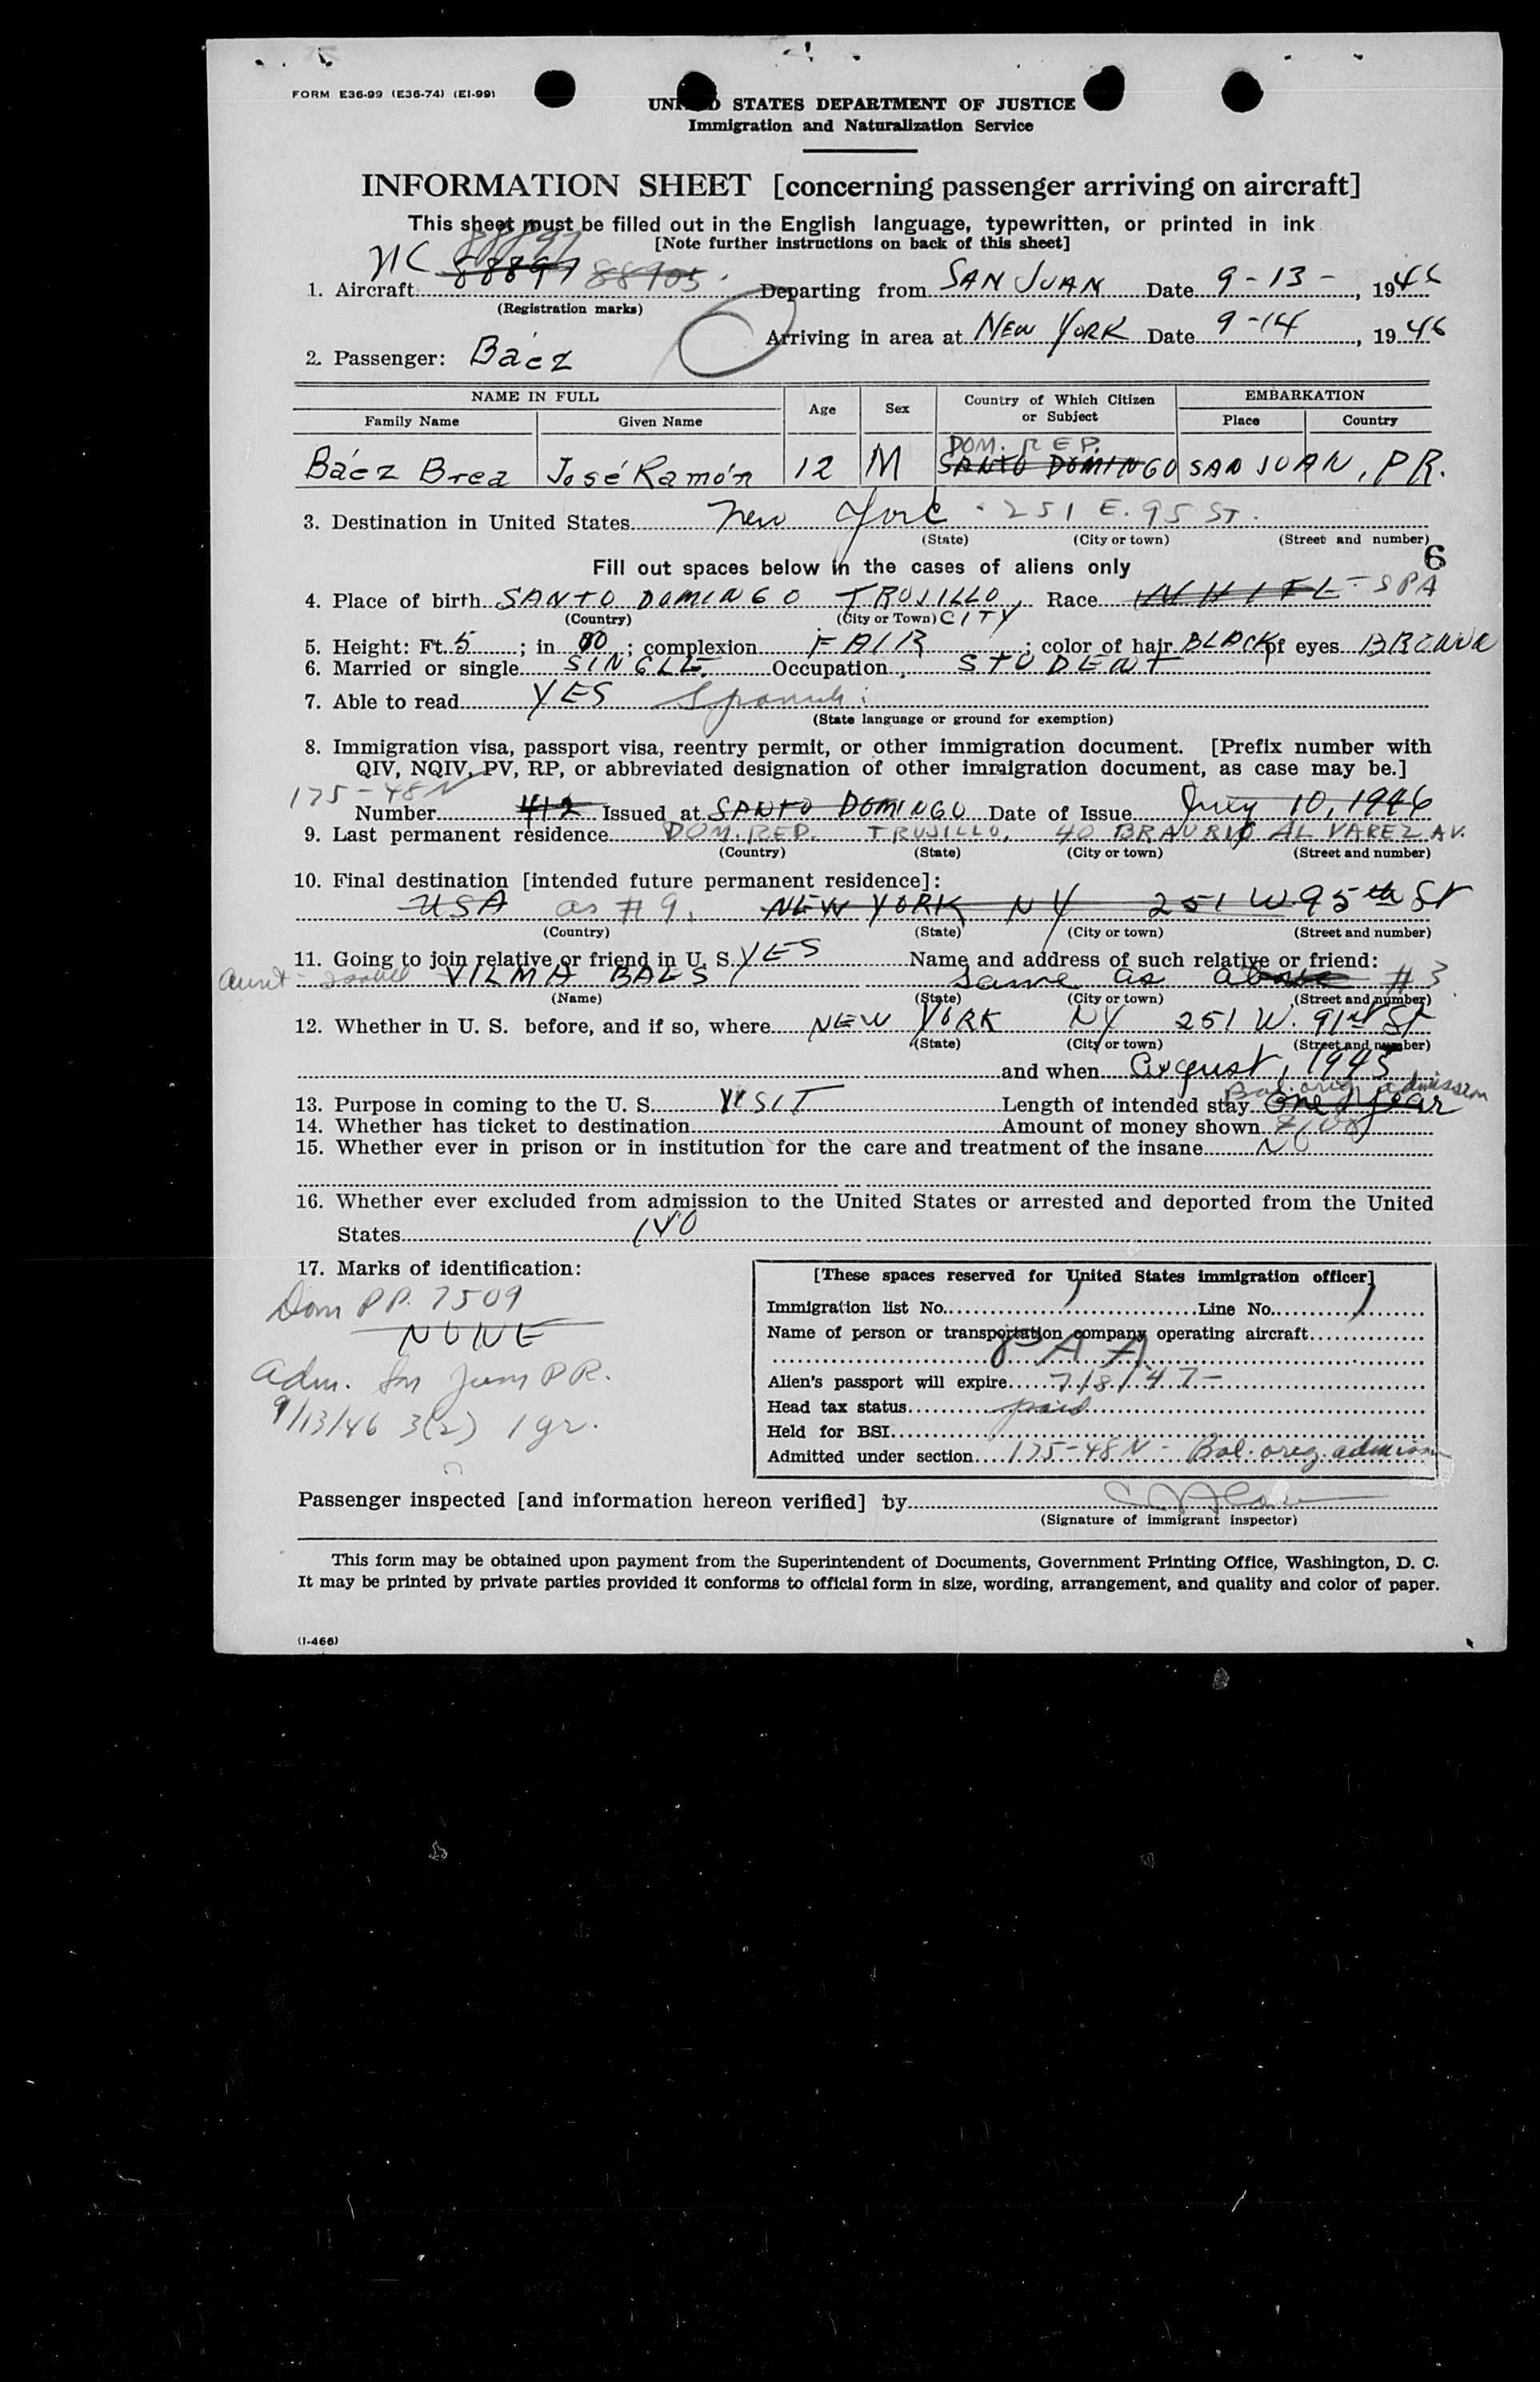 FORM E36-99 (E36-74) (EI-99)
UNITED STATES DEPARTMENT OF JUSTICE
Immigration and Naturalization Service
INFORMATION SHEET [concerning passenger arriving on aircraft]
This sheet must be filled out in the English language, typewritten, or printed in ink
[Note further instructions on back of this sheet]
88897
1. Aircraft NC 88897 88905 Departing from SAN JUAN Date 9-13-, 1946
(Registration marks)
Arriving in area at NEW YORK Date 9-14, 1946
2. Passenger: Báez
NAME IN FULL Age Sex Country of Which Citizen or Subject EMBARKATION
Family Name Given Name Place Country
DOM. REP.
Báez Brea José Ramón 12 M SANTO DOMINGO SAN JUAN, P R.
3. Destination in United States New York - 251 E. 95 ST.
(State) (City or town) (Street and number)
6
Fill out spaces below in the cases of aliens only
4. Place of birth SANTO DOMINGO TRUJILLO, Race WHITE - SPA
(Country) (City or Town) CITY
5. Height: Ft. 5; in 00; complexion FAIR; color of hair BLACK of eyes BROWN
6. Married or single SINGLE. Occupation STUDENT
7. Able to read YES Spanish
(State language or ground for exemption)
8. Immigration visa, passport visa, reentry permit, or other immigration document. [Prefix number with
QIV, NQIV, PV, RP, or abbreviated designation of other immigration document, as case may be.]
175-48N
Number 412 Issued at SANTO DOMINGO Date of Issue July 10, 1946
9. Last permanent residence DOM. REP. TRUJILLO, 40 BRAURIO ALVAREZ AV.
(Country) (State) (City or town) (Street and number)
10. Final destination [intended future permanent residence]:
USA as #9. NEW YORK NY 251 W 95th St
(Country) (State) (City or town) (Street and number)
11. Going to join relative or friend in U. S. YES Name and address of such relative or friend:
aunt - VILMA BAES same as above #3
(Name) (State) (City or town) (Street and number)
12. Whether in U. S. before, and if so, where NEW YORK NY 251 W. 91st St
(State) (City or town) (Street and number)
and when August, 1945
Bal. orig. admission
13. Purpose in coming to the U. S. VISIT Length of intended stay One year
14. Whether has ticket to destination Amount of money shown
15. Whether ever in prison or in institution for the care and treatment of the insane NO
16. Whether ever excluded from admission to the United States or arrested and deported from the United
States NO
17. Marks of identification:
Dom P.P. 7509
NONE
Adm. San Juan P.R.
9/13/46 3(2) 1 yr.
[These spaces reserved for United States immigration officer]
Immigration list No. 1 Line No. 1
Name of person or transportation company operating aircraft
PAA
Alien's passport will expire 7/8/47-
Head tax status paid
Held for BSI
Admitted under section 175-48N - Bal. orig. admission
Passenger inspected [and information hereon verified] by
(Signature of immigrant inspector)
This form may be obtained upon payment from the Superintendent of Documents, Government Printing Office, Washington, D. C.
It may be printed by private parties provided it conforms to official form in size, wording, arrangement, and quality and color of paper.
(I-466)